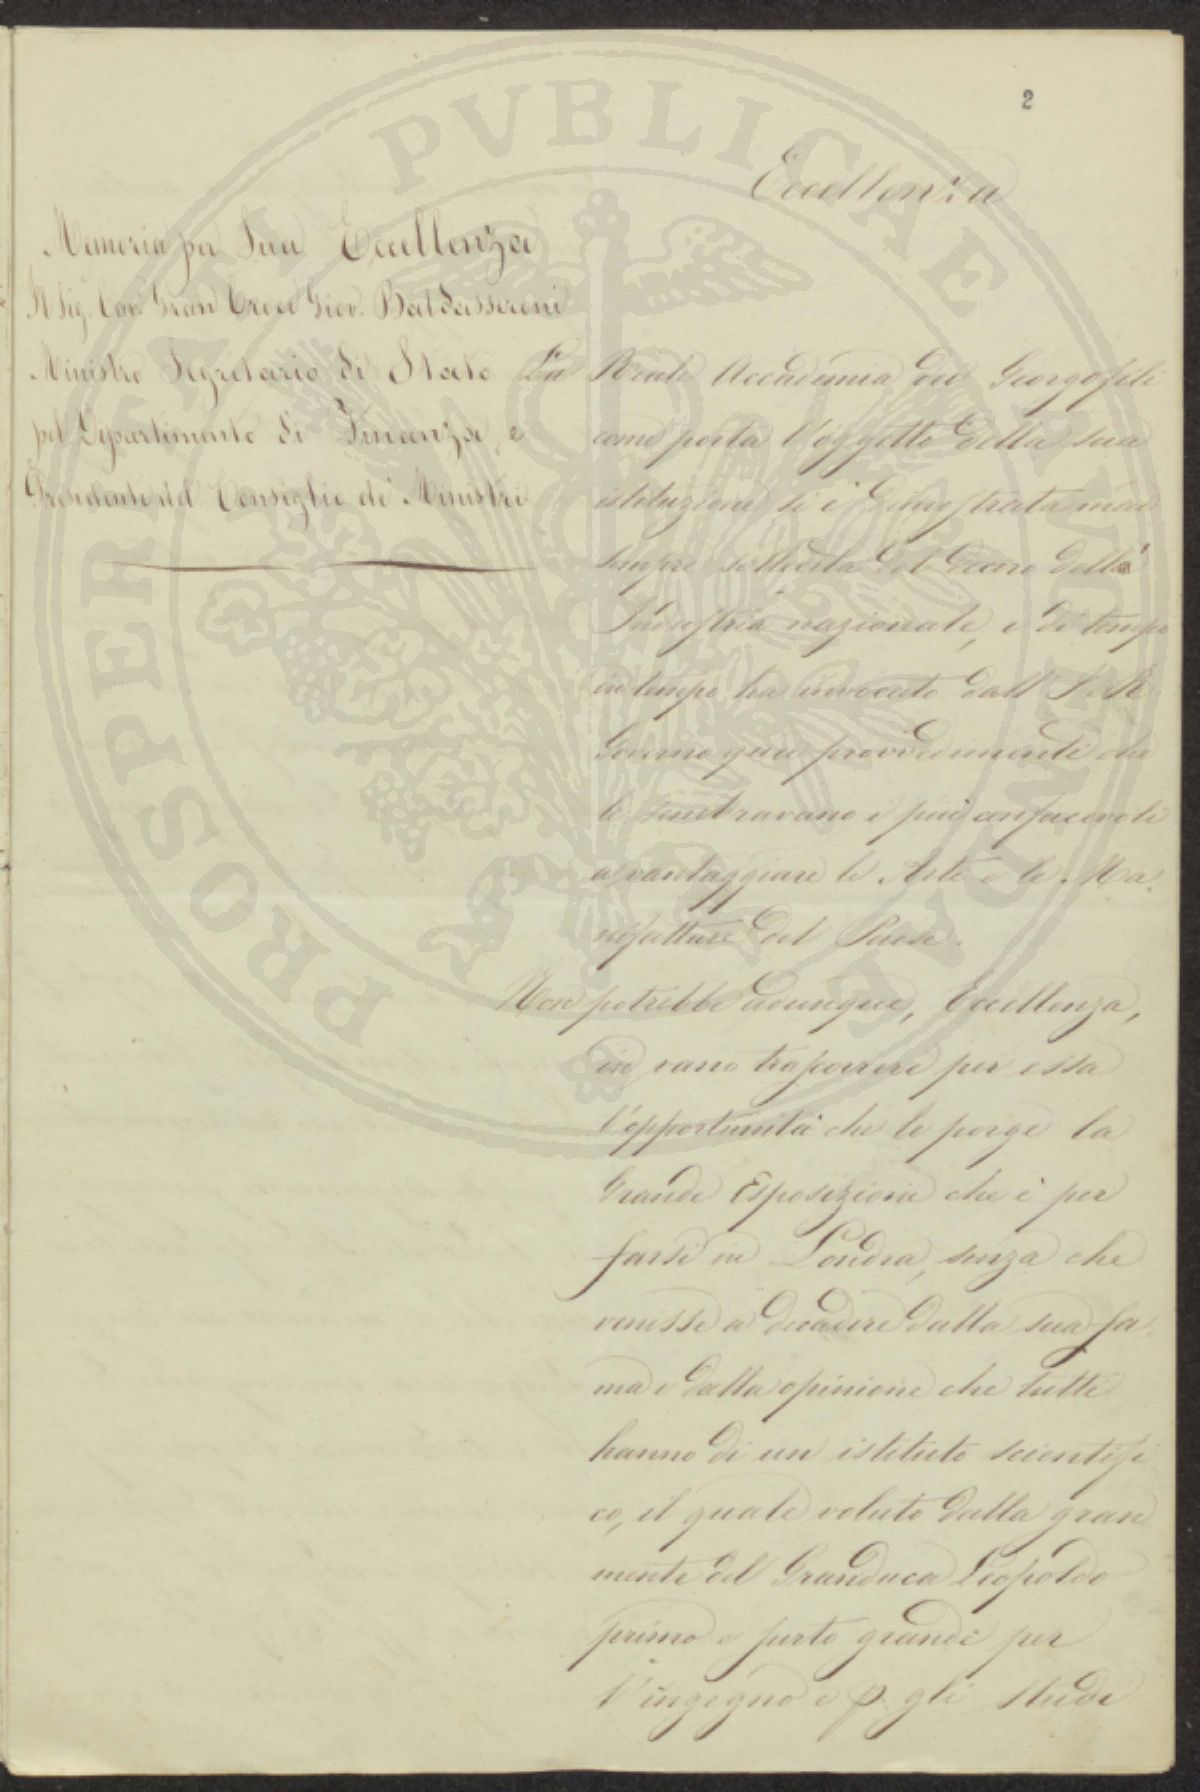 2
Eccellenza
Memoria per Sua Eccellenza
Il Sig. Cav. Gran Croce Giov. Baldasseroni
Ministro Segretario di Stato
pel Dipartimento di Finanza, e
Presidente del Consiglio de' Ministri
La Reale Accademia dei Georgofili
come porta l'oggetto della sua
istituzione si è dimostrata mai
sempre sollecita del decoro dell'
Industria nazionale, e di tempo
in tempo ha invocato dall' I. e R.
Governo quei provvedimenti che
le sembravano i più confacevoli
a vantaggiare le Arti e le Ma
nifatture del Paese.
Non potrebbe adunque, Eccellenza,
in vano trascorrere per essa
l'opportunità che le porge la
Grande Esposizione che è per
farsi in Londra, senza che
venisse a decadere dalla sua fa
ma e dalla opinione che tutti
hanno di un istituto scientifi
co, il quale voluto dalla gran
mente del Granduca Leopoldo
primo e surto grande per
l'ingegno e p. gli studi
PROSPERITATI PVBLICAE